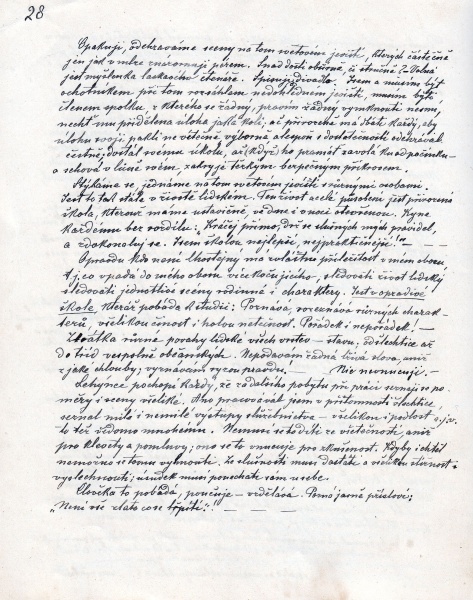 28
Opakuji, odehráváme sceny na tom světovém jevišti, kterých částečně
jen jak v mlze znázorňuji pérem. Snad dosti obšírně, či stručně?
jest myšlenka laskavého čtenáře.
ochotníkem při tom rozsáhlem nedohledném jevišti, musím býti
členem spolku, z kterého se žádný, pravím žádný vymknouti nesmí,
nechť mu přidělena úloha jaká koli, ač přirozeně má dbáti každý, aby
úlohu svoji, pakli ne větčině výborně alespoň s dostatečností odehrával,
čestně dostál svému úkolu, až (když) ho pramáť zavolá ku odpočinku
a schová v lůně svém, zakryje těžkým bezpečným příkrovem.
Stýkáme se, jednáme na tom světovém jevišti s různými osobami.
Jest to tak stále v životě lidském. Ten život a celé působení jest přirozená
škola, kterou máme ustavičně, ve dne i v noci otevřenou. Kyne
každému bez rozdílu: Kráčej přímo, drž se slušných mých pravidel,
a zdokonaluj se. Jsem školou nejlepší, nejpraktičnější!"
Opravdu kdo není lhostejný má zvláštní příležitost v něm oboru
t.j. co vpadá do mého oboru více kočujícího, sledovati život lidský
sledovati jednotlivé scény rodinné i charaktery. Jest v opravdivé
škole, kteráž pobádá k studii: Poznává, rozeznává různých charak-
terů, všelikou činnost i holou netečnost. Pořádek i nepořádek!
Zkrátka různé povahy lidské všech vrstev – stavů, od šlechtice až
do tříd vespolně občanských. Nepodávám žádná lživá slova, aniž
z jaké chlouby, vyznávám ryzou pravdu. Nic nevnucuji.
pochopí každý, že z dalšího pobytu při práci seznají se po-
měry i sceny všeliké. Ano pracovával jsem v přítomnosti šlechtice,
seznal milé i nemilé výstupy služebnictva – všelikou i podlost a.j.v.
to též vědomo mnohému. Nemusí se hoditi ze všetečnosti, aniž
pro klevety a pomluvy; ono se to vnucuje pro zkušenost. Kdyby i chtěl
nemožno se tomu vyhnouti. Ze slušnosti musí dostáti a všelikou stížnost i
vyslechnouti; úsudek musí ponechati sám u sebe.
Člověka to pobádá, poučuje – vzdělává. Pomůj jasné přísloví:
„Není vše zlato co se třpití:"!